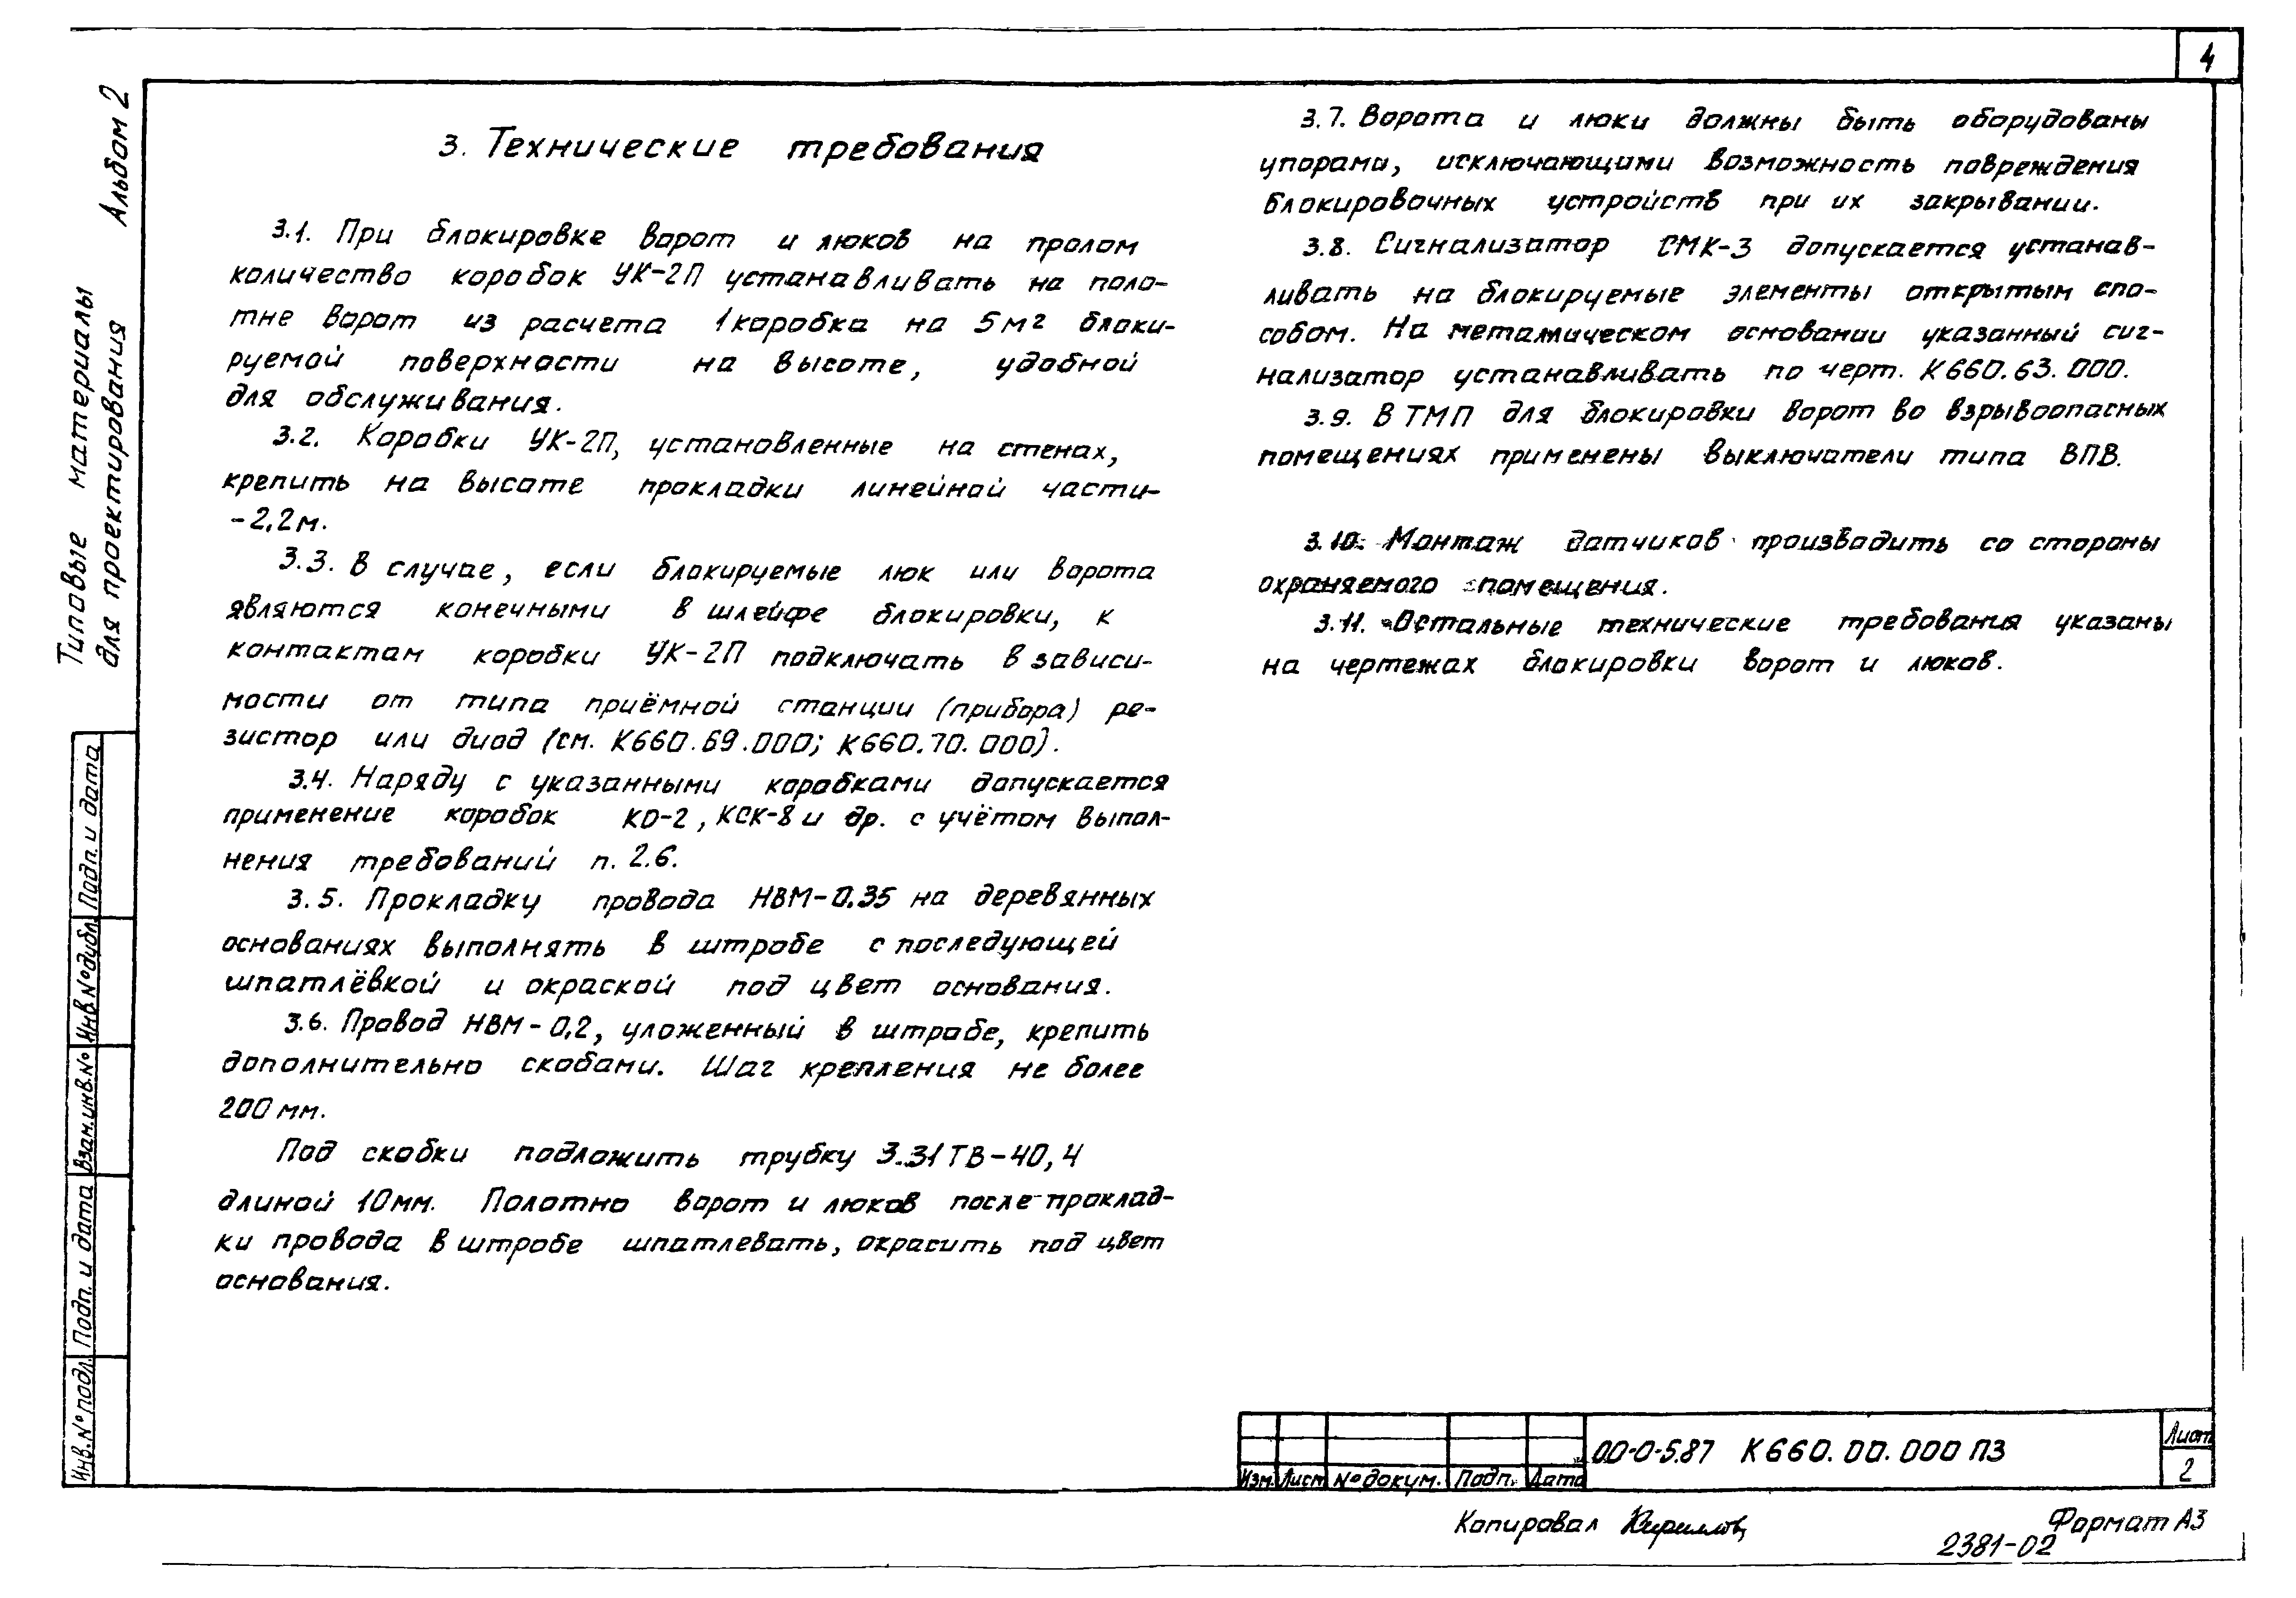 4
Типовые материалы
для проектирования
Альбом 2
3. Технические требования
3.1. При блокировке ворот и люков на пролом
количество коробок УК-2П устанавливать на поло-
тне ворот из расчета 1 коробка на 5м2 блоки-
руемой поверхности на высоте, удобной
для обслуживания.
3.2. Коробки УК-2П, установленные на стенах,
крепить на высоте прокладки линейной части-
-2,2м.
3.3. В случае, если блокируемые люк или ворота
являются конечными в шлейфе блокировки, к
контактам коробки УК-2П подключать в зависи-
мости от типа приёмной станции (прибора) ре-
зистор или диод (см. К660.69.000; К660.70.000).
3.4. Наряду с указанными коробками допускается
применение коробок КО-2, КСК-8 и др. с учётом выпол-
нения требований п. 2.6.
3.5. Прокладку провода НВМ-0.35 на деревянных
основаниях выполнять в штробе с последующей
шпатлёвкой и окраской под цвет основания.
3.6. Провод НВМ-0,2, уложенный в штробе, крепить
дополнительно скобами. Шаг крепления не более
200 мм.
Под скобки подложить трубку 3.31ТВ-40,4
длиной 10мм. Полотно ворот и люков после проклад-
ки провода в штробе шпатлевать, окрасить под цвет
основания.
3.7. Ворота и люки должны быть оборудованы
упорами, исключающими возможность повреждения
блокировочных устройств при их закрывании.
3.8. Сигнализатор СМК-3 допускается устанав-
ливать на блокируемые элементы открытым спо-
собом. На металлическом основании указанный сиг-
нализатор устанавливать по черт. К660.63.000.
3.9. В ТМП для блокировки ворот во взрывоопасных
помещениях применены выключатели типа ВПВ.
3.10. Монтаж датчиков производить со стороны
охраняемого помещения.
3.11. Остальные технические требования указаны
на чертежах блокировки ворот и люков.
Подп. и дата
Инв.№дубл.
Взам.инв.№
Подп. и дата
Инв.№подл.
Изм. Лист №докум. Подп. Дата
00-0-5.87 К660.00.000 ПЗ
Лист
2
Копировал Кириллов
Формат А3
2381-02